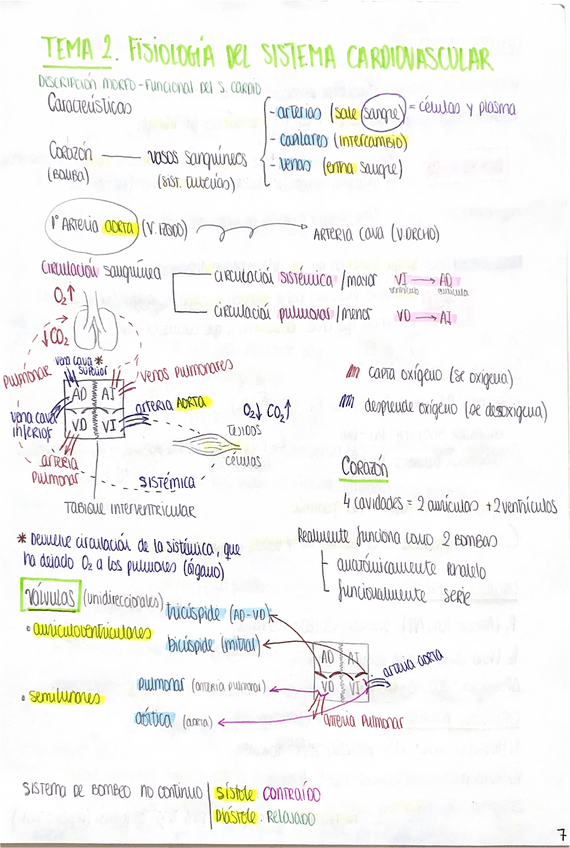 TEMA 2. FISIOLOGÍA DEL SISTEMA CARDIOVASCULAR
DESCRIPCIÓN MORFO-FUNCIONAL DEL S. CARDIO
Características
- arterias (sale sangre) = células y plasma
- capilares (intercambio)
- venas (entra sangre)
Corazón — vasos sanguíneos
(BOMBA) (SIST. TUBERÍAS)
1º ARTERIA AORTA (V. IZQDO) → ARTERIA CAVA (V DRCHO)
circulación sanguínea
circulación sistémica / mayor VI → AD
ventrículo aurícula
circulación pulmonar / menor VD → AI
O2↑
↓CO2
vena cava *
superior
pulmonar
venas pulmonares
AD AI
VD VI
arteria AORTA
vena cava
inferior
O2↓ CO2↑
TEJIDOS
células
arteria
pulmonar
SISTÉMICA
TABIQUE INTERVENTRICULAR
capta oxígeno (se oxigena)
desprende oxígeno (se desoxigena)
CORAZÓN
4 cavidades = 2 aurículas + 2 ventrículos
Realmente funciona como 2 BOMBAS
anatómicamente paralelo
funcionalmente serie
* Devuelve circulación de la sistémica, que
ha dejado O2 a los pulmones (órgano)
Válvulas (unidireccionales)
• auriculoventriculares
tricúspide (AD-VD)
bicúspide (mitral)
• semilunares
pulmonar (arteria pulmonar)
aórtica (aorta)
AD AI
VD VI
arteria aorta
arteria Pulmonar
SISTEMA DE BOMBEO NO CONTINUO
SÍSTOLE CONTRAÍDO
DIÁSTOLE: RELAJADO
7